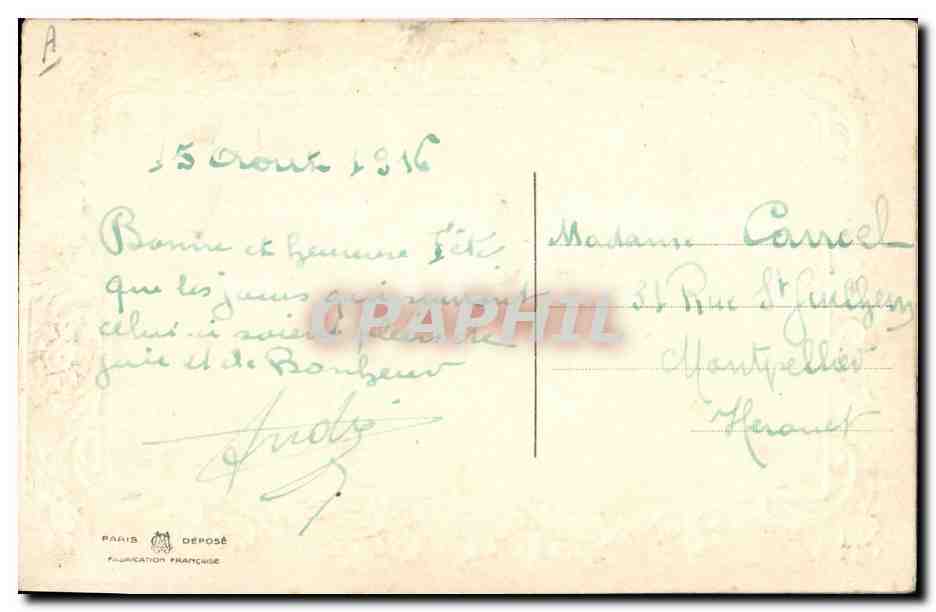 A
15 Aout 1916
Bonne et heureuse fête
que les jours qui suivront
celui ci soient de
joie et de Bonheur
André
Madame
31 Rue St Guilhem
Montpellier
Herault
CPAPHIL
PARIS DÉPOSÉ
FABRICATION FRANÇAISE